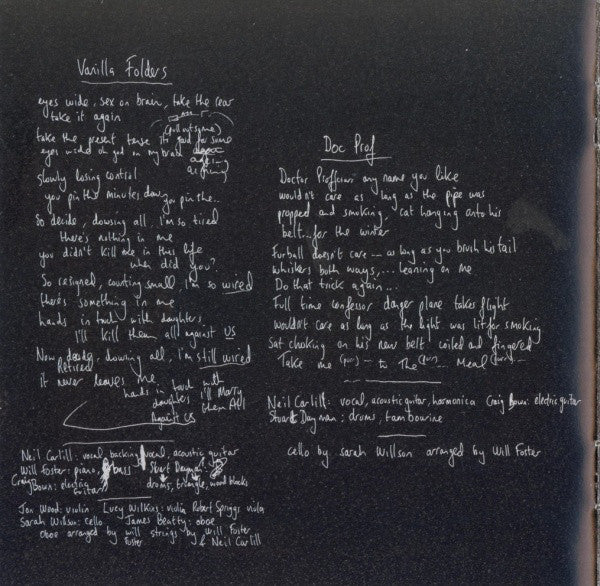 Vanilla Folders
eyes wide, sex on brain, take the rear
take it again
(pull out some)
take the present tense it's good for some
eyes wide oh god on my brain
slowly losing control
you pin the minutes down you pin the...
So decide, dowsing all, I'm so tired
there's nothing in me
you didn't kill me in this life
when did you?
So resigned, counting small I'm so wired
there's something in me
hands in touch with daughters
I'll kill them all against us
Now dowsing all, I'm still wired
Retired
it never leaves me
hands in touch with
daughters I'll Marry
them All
Against us
Neil Carlill: vocal, backing vocal, acoustic guitar
Will Foster: piano, bass Stuart Dayman:
Craig Bown: electric guitar drums, triangle, wood blocks
Jon Wood: violin Lucy Wilkins: violin Robert Spriggs viola
Sarah Willson: cello James Beatty: oboe
oboe arranged by Will Foster strings by Will Foster
& Neil Carlill
Doc Prof
Doctor Profficiur any name you like
wouldn't care as long as the pipe was
propped and smoking, cat hanging onto his
belt... for the winter
Furball doesn't care — as long as you brush his tail
whiskers both ways,... leaning on me
Do that trick again...
Full time confessor danger plane takes flight
wouldn't care as long as the light was lit for smoking
Sat choking on his new belt coiled and fingered
Take me (guns) — to The (guns)... Meal (guns)...
Neil Carlill: vocal, acoustic guitar, harmonica Craig Bown: electric guitar
Stuart Dayman: drums, tambourine
cello by Sarah Willson arranged by Will Foster